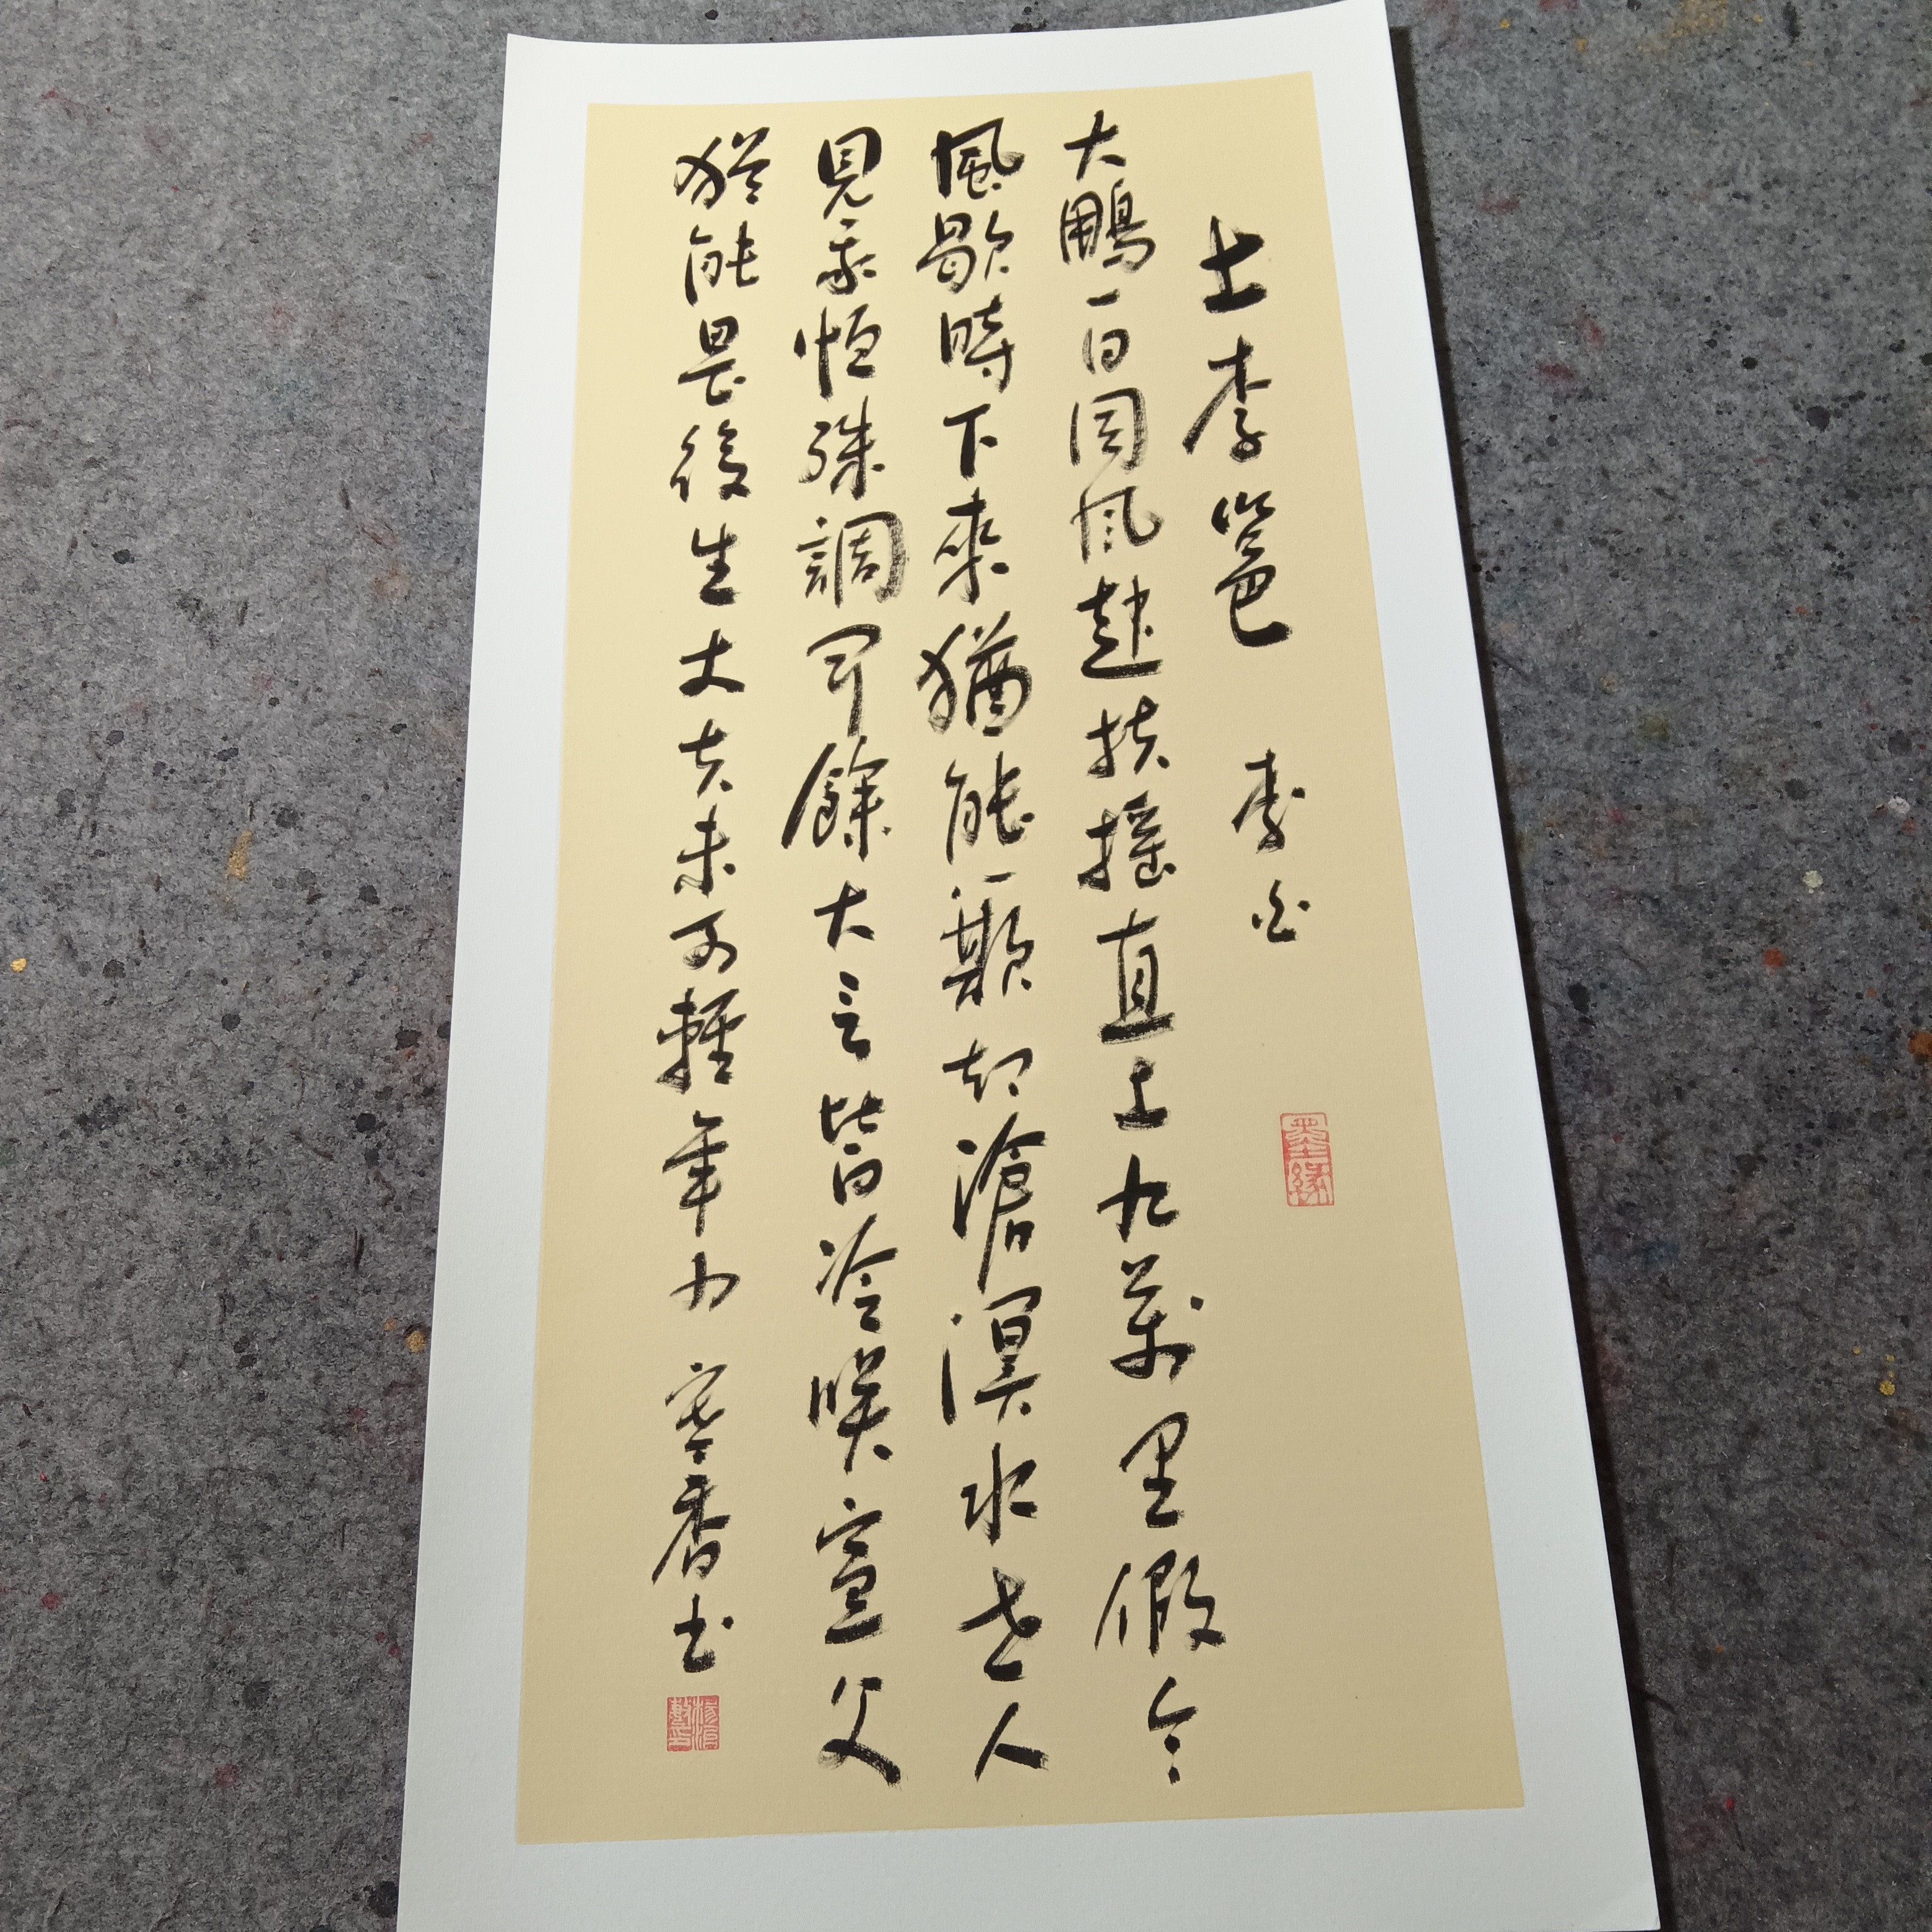 上李邕 李白
墨緣
大鵬一日同风起扶摇直上九萬里假令
風歇時下來猶能簸却滄溟水世人
見我恒殊調聞餘大言皆冷咲宣父
猶能畏後生丈夫未可輕年少 寒香书